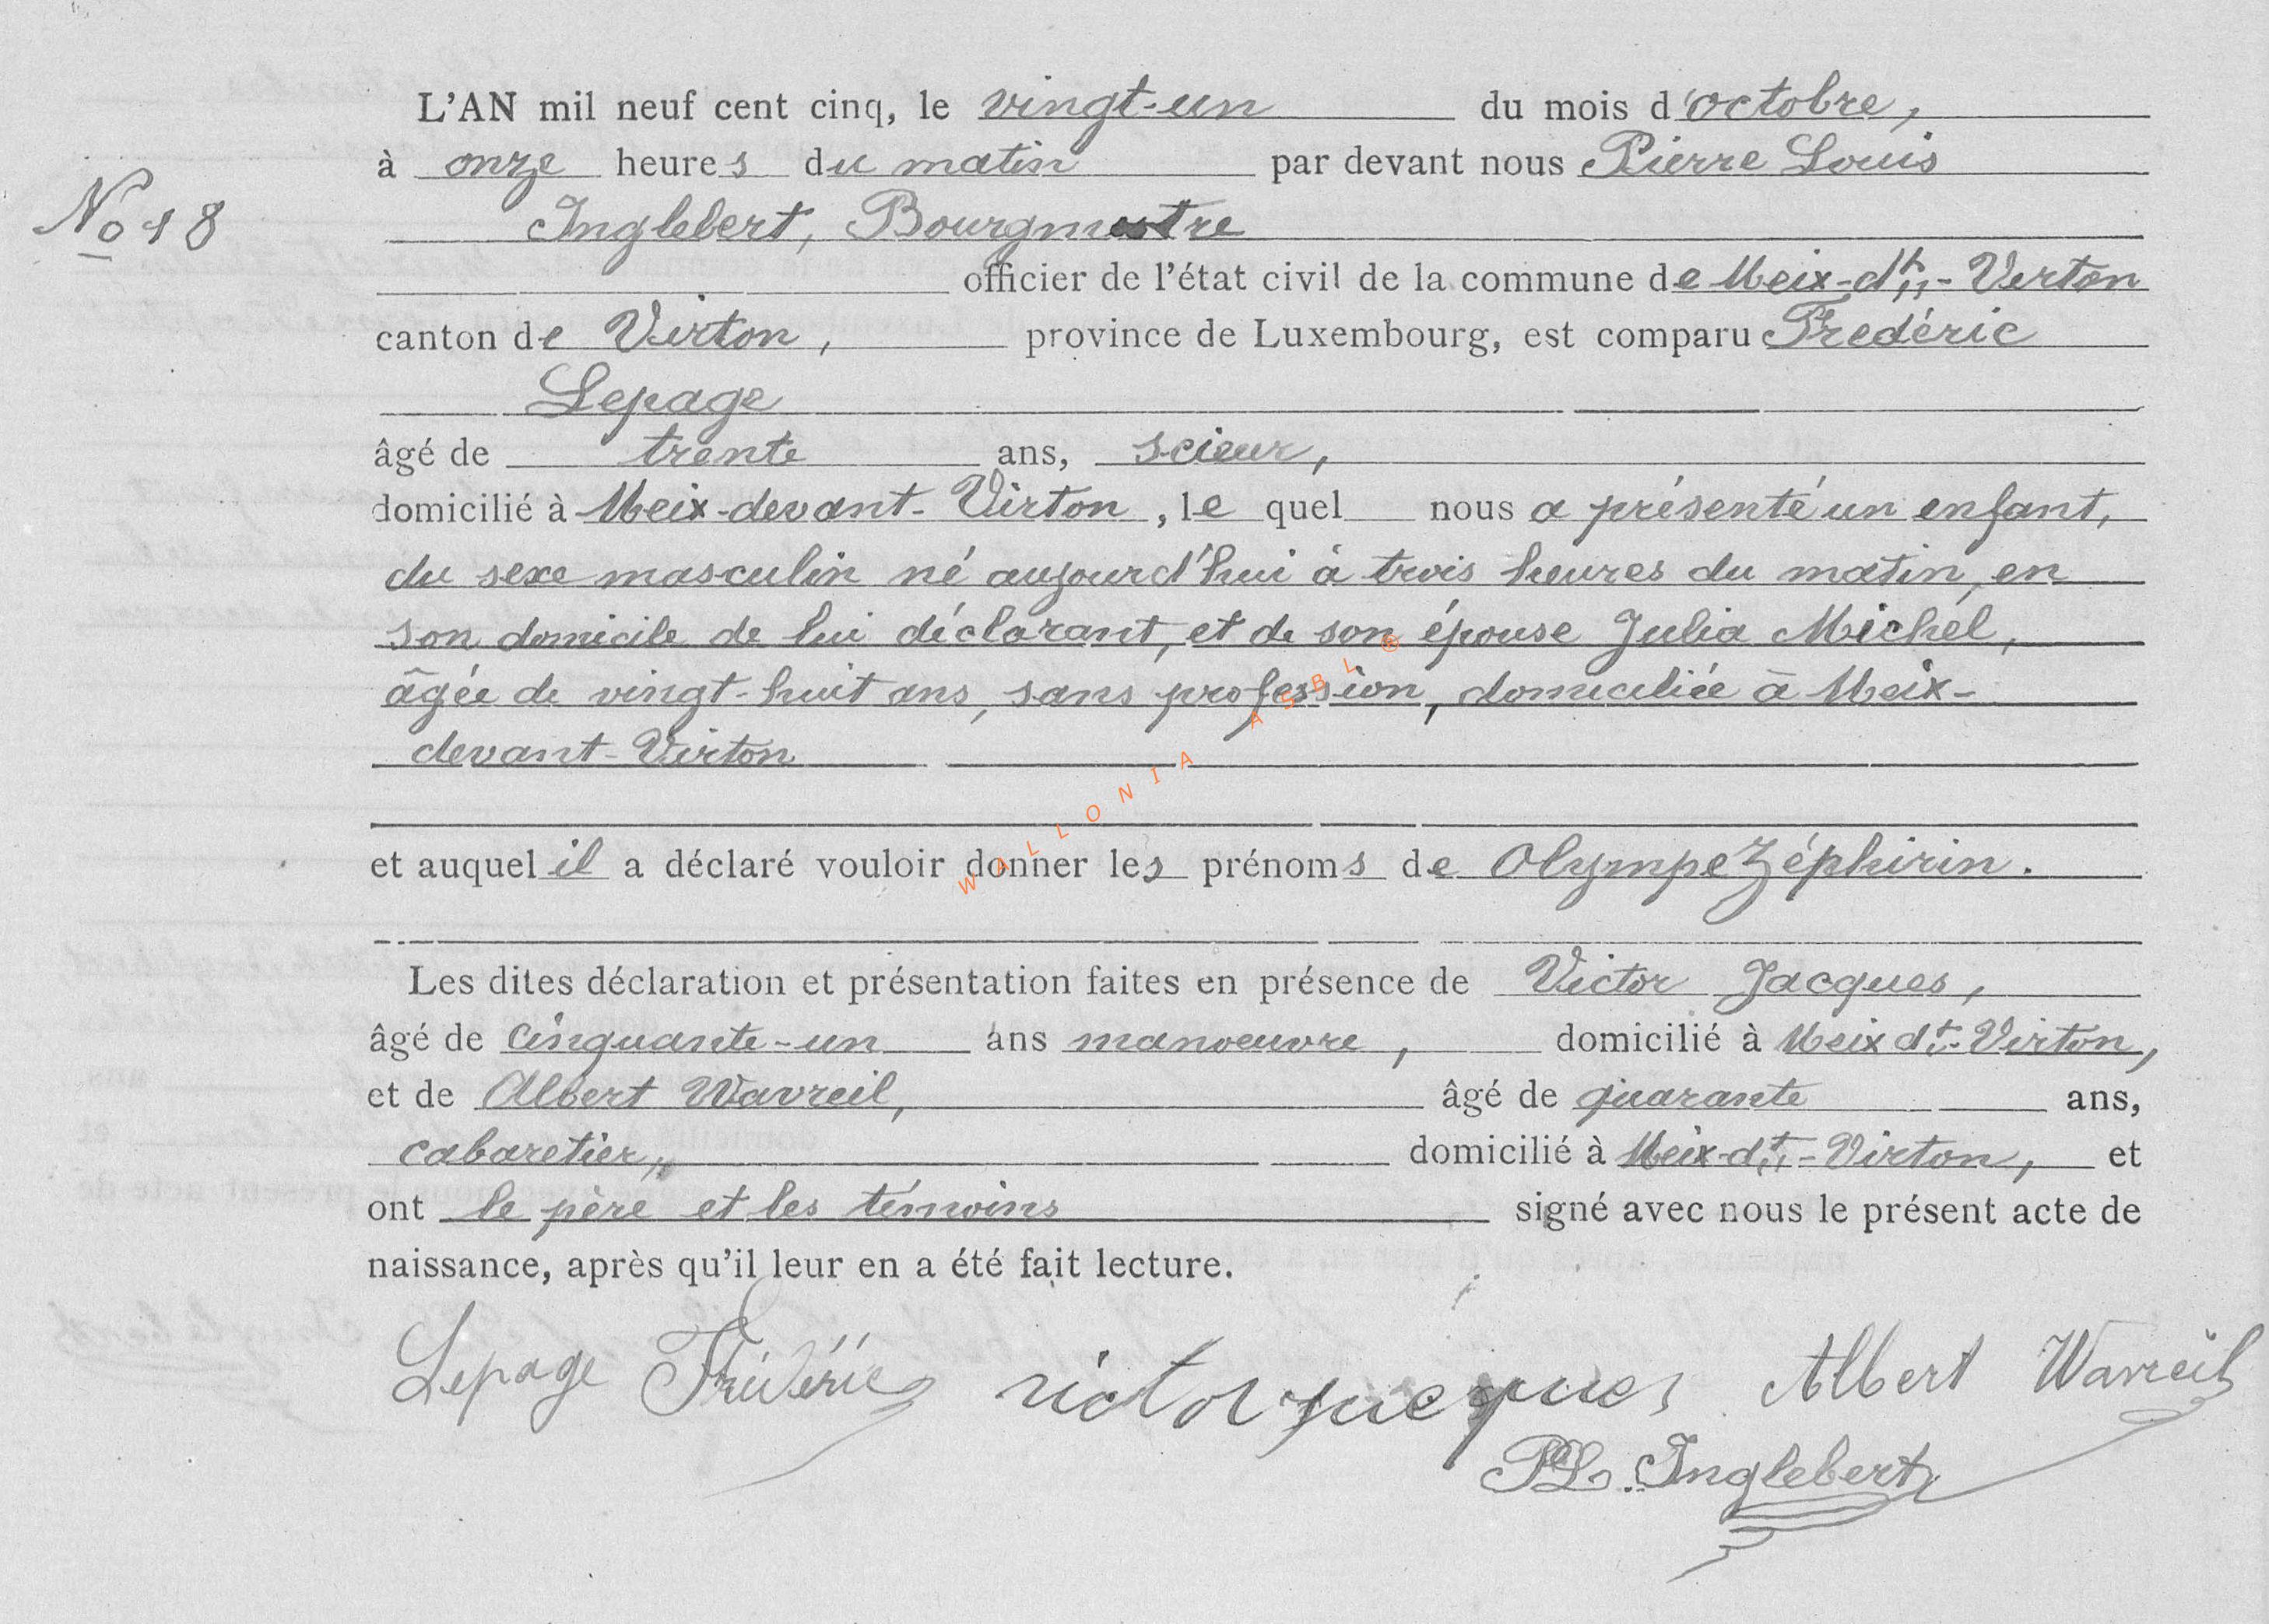 L'AN mil neuf cent cinq, le vingt-un du mois d'octobre,
à onze heures du matin par devant nous Pierre Louis
No 18
Inglebert, Bourgmestre
officier de l'état civil de la commune de Meix-dt-Virton
canton de Virton, province de Luxembourg, est comparu Fredéric
Lepage
âgé de trente ans, scieur,
domicilié à Meix-devant-Virton, le quel nous a présenté un enfant,
du sexe masculin né aujourd'hui à trois heures du matin, en
son domicile de lui déclarant, et de son épouse Julia Michel,
âgée de vingt-huit ans, sans profession, domiciliée à Meix-
devant-Virton
WALLONIA ASBL ®
et auquel il a déclaré vouloir donner les prénoms de Olympe Zéphirin.
Les dites déclaration et présentation faites en présence de Victor Jacques,
âgé de cinquante-un ans manoeuvre, domicilié à Meix dt-Virton,
et de Albert Wavreil, âgé de quarante ans,
cabaretier, domicilié à Meix-dt-Virton, et
ont le père et les témoins signé avec nous le présent acte de
naissance, après qu'il leur en a été fait lecture.
Lepage Frédéric victor jacques Albert Wavreil
PL. Inglebert